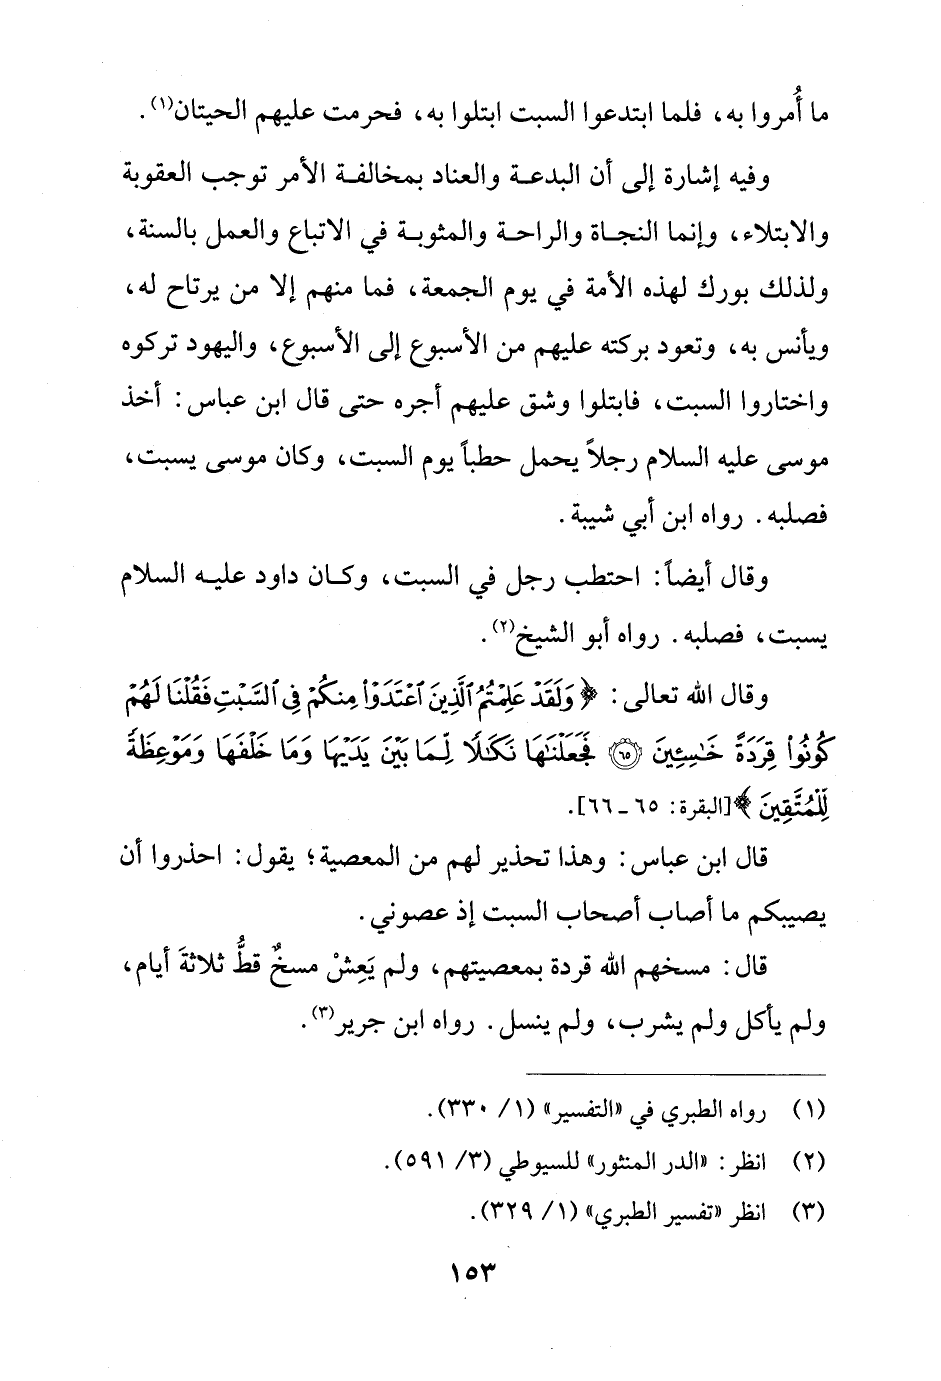 ما أُمروا به، فلما ابتدعوا السبت ابتلوا به، فحرمت عليهم الحيتان(١).
وفيه إشارة إلى أن البدعة والعناد بمخالفة الأمر توجب العقوبة
والابتلاء، وإنما النجاة والراحة والمثوبة في الاتباع والعمل بالسنة،
ولذلك بورك لهذه الأمة في يوم الجمعة، فما منهم إلا من يرتاح له،
ويأنس به، وتعود بركته عليهم من الأسبوع إلى الأسبوع، واليهود تركوه
واختاروا السبت، فابتلوا وشق عليهم أجره حتى قال ابن عباس: أخذ
موسى عليه السلام رجلاً يحمل حطباً يوم السبت، وكان موسى يسبت،
فصلبه. رواه ابن أبي شيبة.
وقال أيضاً: احتطب رجل في السبت، وكان داود عليه السلام
يسبت، فصلبه. رواه أبو الشيخ(٢).
وقال الله تعالى: ﴿وَلَقَدْ عَلِمْتُمُ ٱلَّذِينَ ٱعْتَدَوْا۟ مِنكُمْ فِى ٱلسَّبْتِ فَقُلْنَا لَهُمْ
كُونُوا۟ قِرَدَةً خَـٰسِـِٔينَ ٦٥ فَجَعَلْنَـٰهَا نَكَـٰلًا لِّمَا بَيْنَ يَدَيْهَا وَمَا خَلْفَهَا وَمَوْعِظَةً
لِّلْمُتَّقِينَ﴾ [البقرة: ٦٥ ـ ٦٦].
قال ابن عباس: وهذا تحذير لهم من المعصية؛ يقول: احذروا أن
يصيبكم ما أصاب أصحاب السبت إذ عصوني.
قال: مسخهم الله قردة بمعصيتهم، ولم يَعِشْ مسخٌ قطُّ ثلاثةَ أيام،
ولم يأكل ولم يشرب، ولم ينسل. رواه ابن جرير(٣).
(١) رواه الطبري في «التفسير» (١/ ٣٣٠).
(٢) انظر: «الدر المنثور» للسيوطي (٣/ ٥٩١).
(٣) انظر «تفسير الطبري» (١/ ٣٢٩).
١٥٣